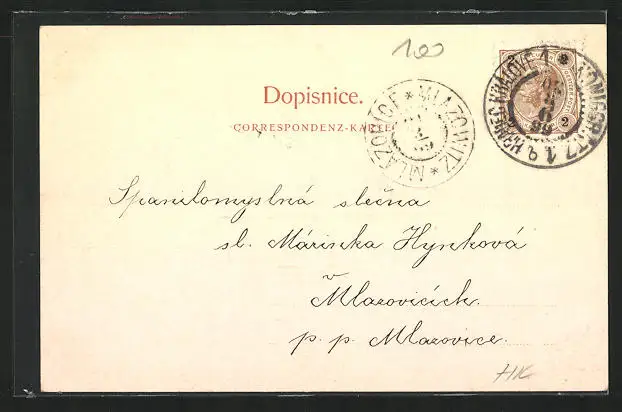 100
Dopisnice.
CORRESPONDENZ-KARTE
MLÁZOVICE * MLAZOWITZ *
HRADEC KRÁLOVÉ 1 * KÖNIGGRATZ 1
2
Spanilomyslná slečna
sl. Márinka Hynková
v
Mlazovicích.
p. p. Mlazovice.
HK